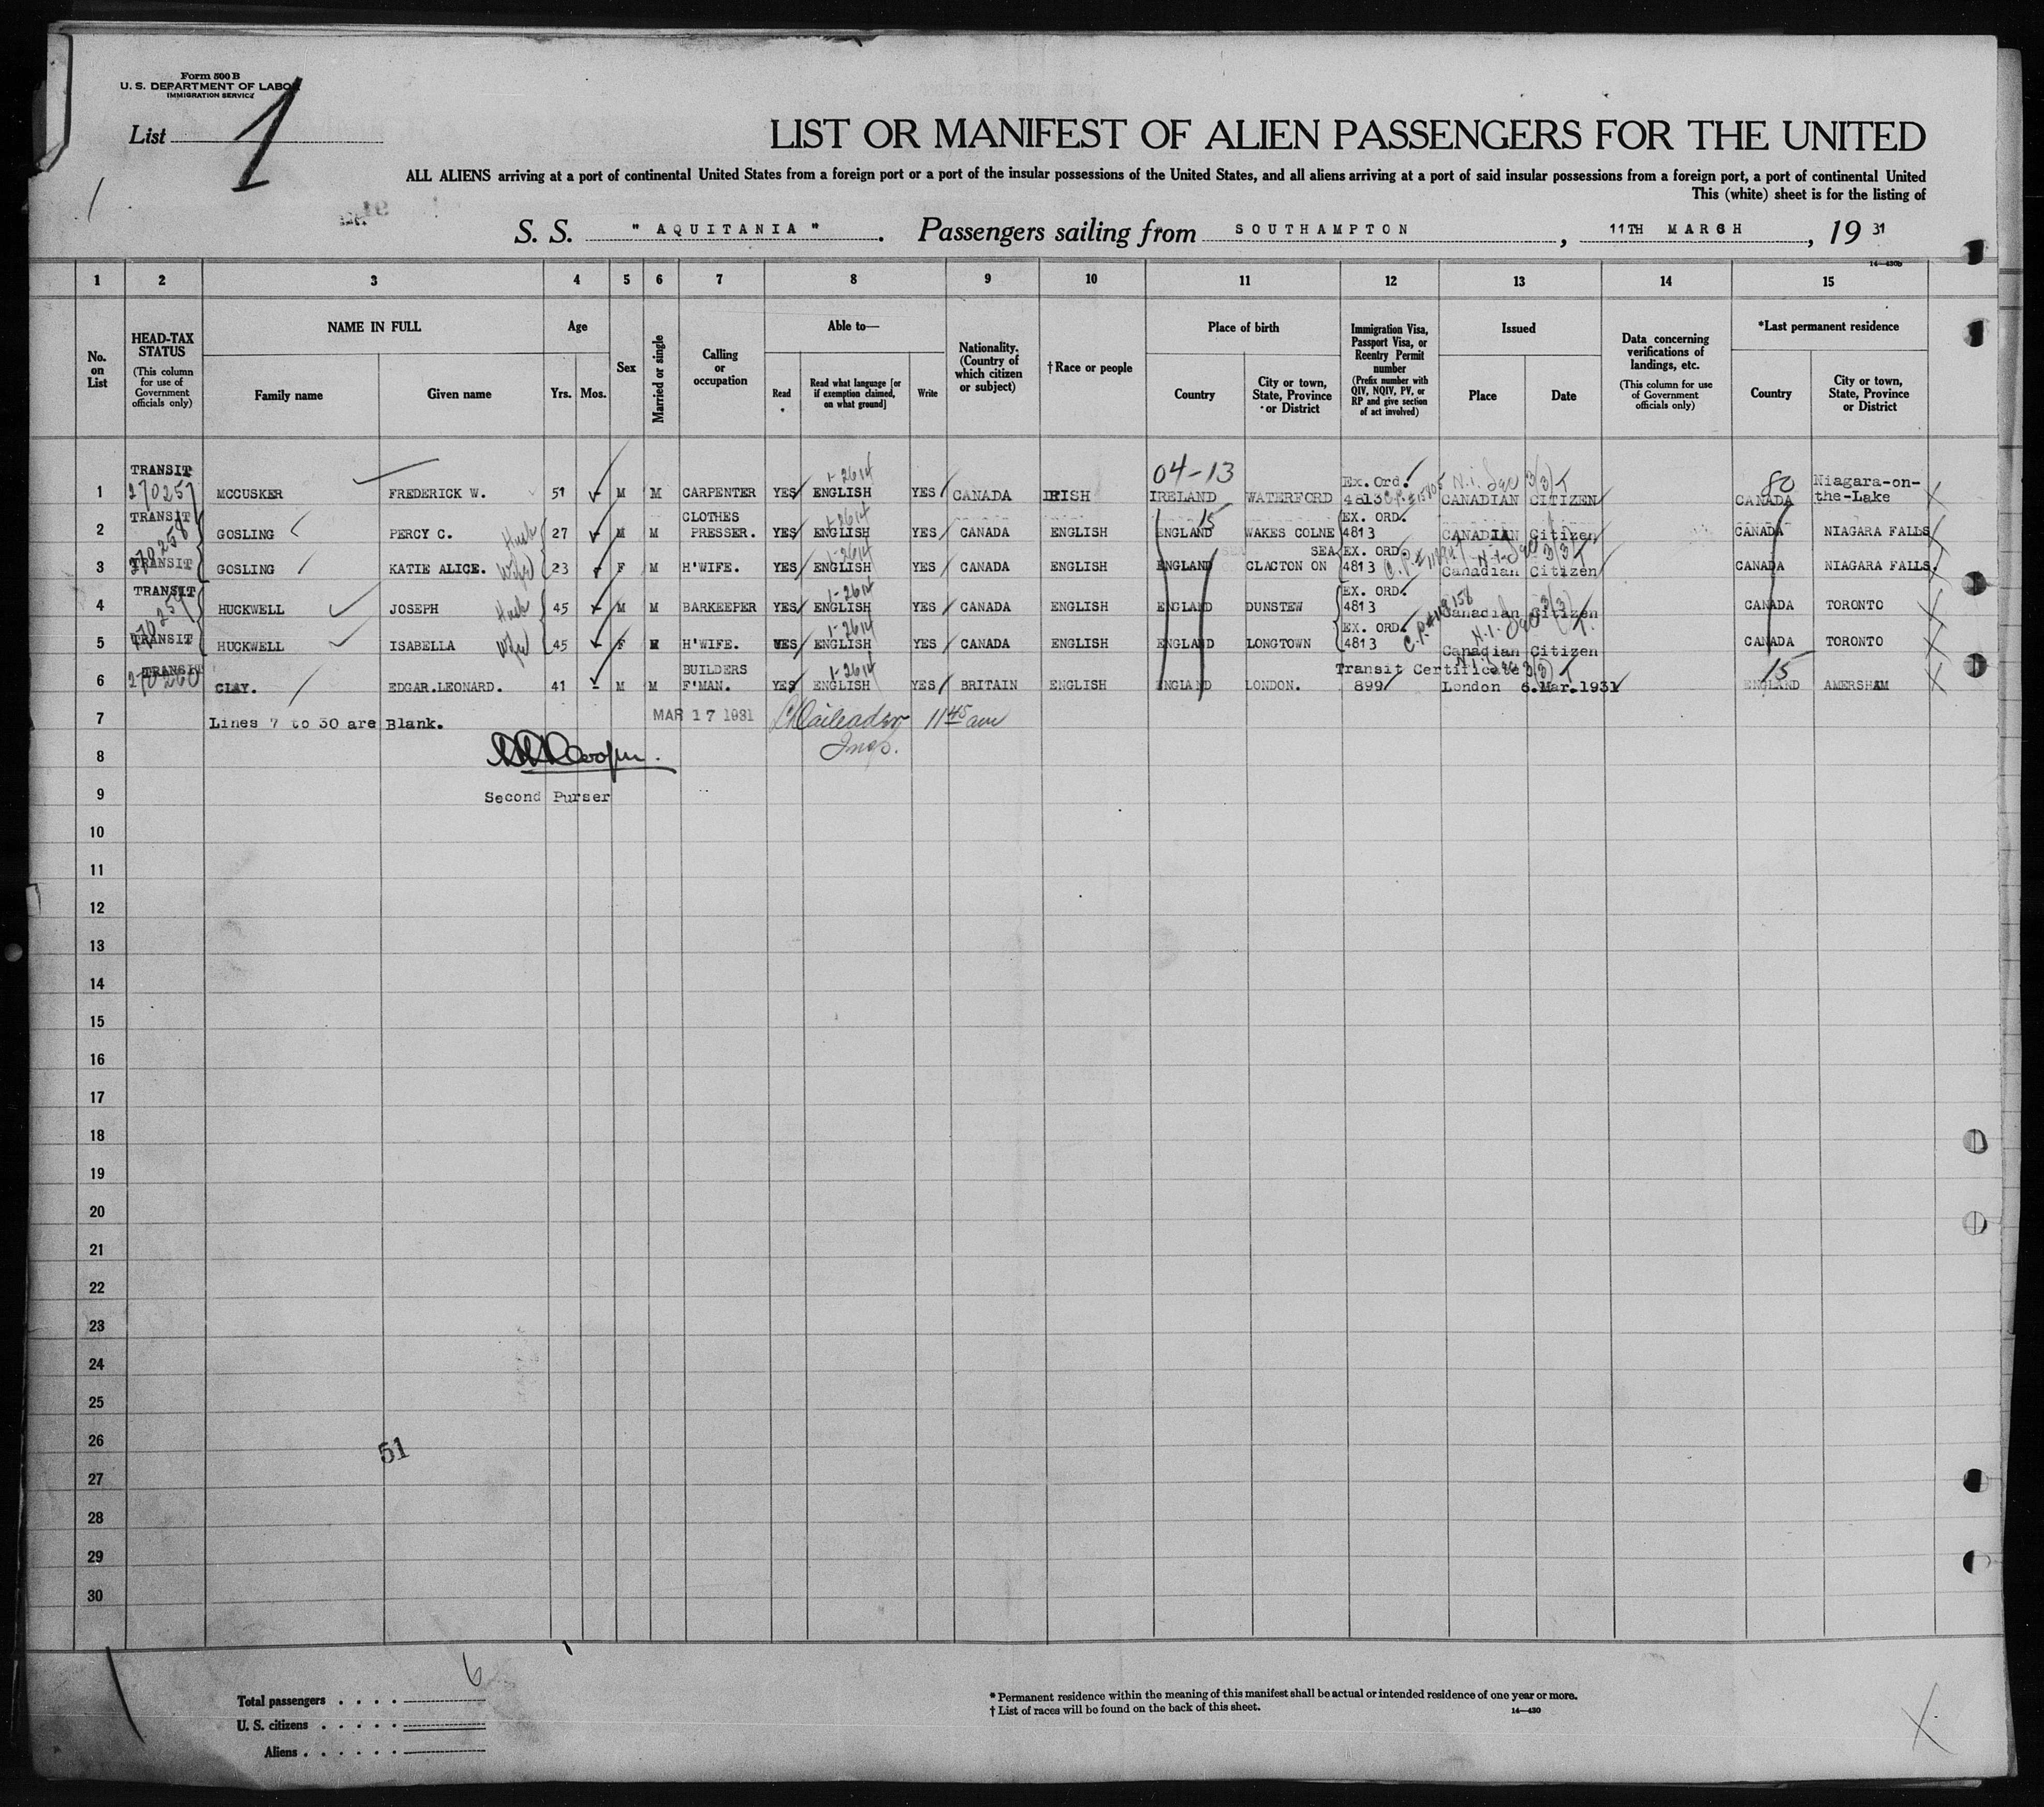 Form 500 B
U. S. DEPARTMENT OF LABOR
IMMIGRATION SERVICE
List 1
LIST OR MANIFEST OF ALIEN PASSENGERS FOR THE UNITED
ALL ALIENS arriving at a port of continental United States from a foreign port or a port of the insular possessions of the United States, and all aliens arriving at a port of said insular possessions from a foreign port, a port of continental United
This (white) sheet is for the listing of
S. S. " AQUITANIA " . Passengers sailing from SOUTHAMPTON , 11TH MARCH , 19 31
14—430b
1 2 3 4 5 6 7 8 9 10 11 12 13 14 15
No. on List
HEAD-TAX STATUS (This column for use of Government officials only)
NAME IN FULL
Family name Given name
Age
Yrs. Mos.
Sex
Married or single
Calling or occupation
Able to—
Read Read what language [or if exemption claimed, on what ground] Write
Nationality. (Country of which citizen or subject)
† Race or people
Place of birth
Country City or town, State, Province or District
Immigration Visa, Passport Visa, or Reentry Permit number (Prefix number with QIV, NQIV, PV, or RP and give section of act involved)
Issued
Place Date
Data concerning verifications of landings, etc. (This column for use of Government officials only)
*Last permanent residence
Country City or town, State, Province or District
TRANSIT 1-2614 04-13 Ex. Ord. 80 Niagara-on-
1 270257 MCCUSKER FREDERICK W. 51 M M CARPENTER YES ENGLISH YES CANADA IRISH IRELAND WATERFORD 4813 CANADIAN CITIZEN CANADA the-Lake
TRANSIT CLOTHES 1-2614 15 EX. ORD.
2 270258 GOSLING PERCY C. Husb 27 M M PRESSER. YES ENGLISH YES CANADA ENGLISH ENGLAND WAKES COLNE 4813 CANADIAN Citizen CANADA NIAGARA FALLS
1-2614 SEA EX. ORD.
3 TRANSIT GOSLING KATIE ALICE. Wife 23 F M H'WIFE. YES ENGLISH YES CANADA ENGLISH ENGLAND CLACTON ON 4813 Canadian Citizen CANADA NIAGARA FALLS.
TRANSIT 1-2614 EX. ORD.
4 270259 HUCKWELL JOSEPH Husb 45 M M BARKEEPER YES ENGLISH YES CANADA ENGLISH ENGLAND DUNSTEW 4813 Canadian Citizen CANADA TORONTO
1-2614 EX. ORD.
5 TRANSIT HUCKWELL ISABELLA Wife 45 F M H'WIFE. YES ENGLISH YES CANADA ENGLISH ENGLAND LONGTOWN 4813 Canadian Citizen CANADA TORONTO
TRANSIT BUILDERS 1-2614 Transit Certificate 15
6 270260 CLAY. EDGAR.LEONARD. 41 M M F'MAN. YES ENGLISH YES BRITAIN ENGLISH ENGLAND LONDON. 899 London 6.Mar.1931 ENGLAND AMERSHAM
7 Lines 7 to 30 are Blank. MAR 17 1931 11 45 am
Insp.
8
Second Purser
9
10
11
12
13
14
15
16
17
18
19
20
21
22
23
24
25
26
51
27
28
29
30
Total passengers . . . . 6
U. S. citizens . . . . .
Aliens . . . . . .
* Permanent residence within the meaning of this manifest shall be actual or intended residence of one year or more.
† List of races will be found on the back of this sheet.
14—430